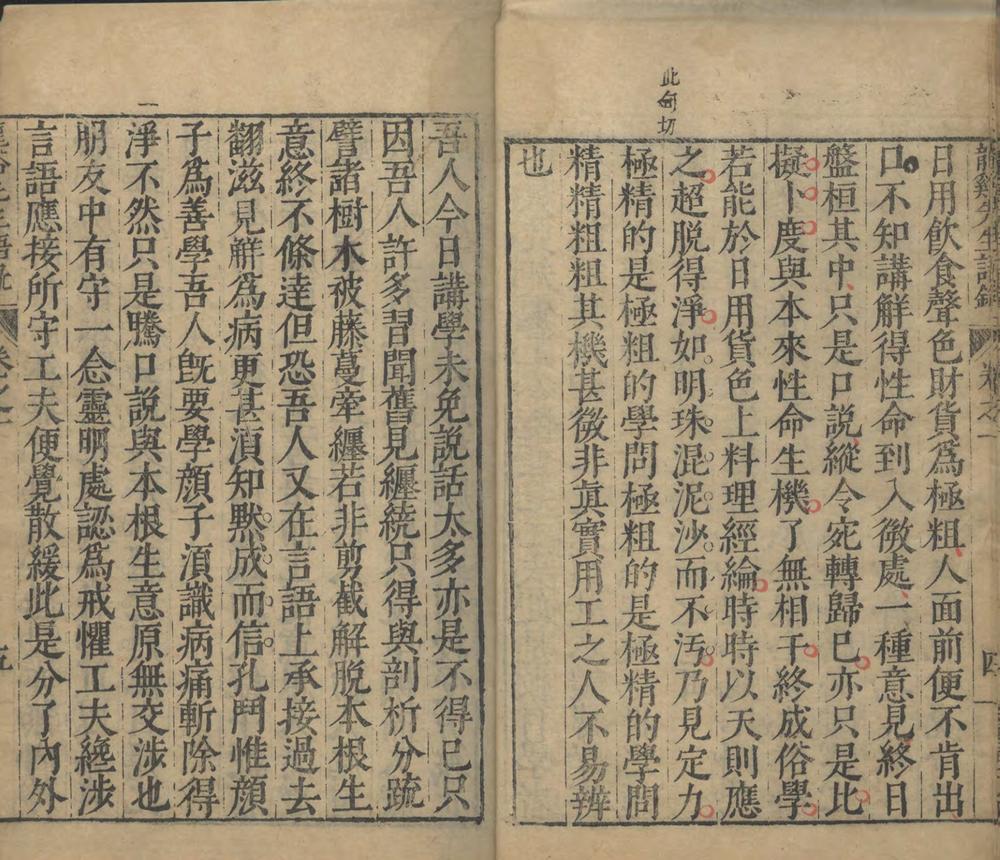 此句切
日用飲食聲色財貨爲極粗人面前便不肯出
口不知講解得性命到入微處一種意見終日
盤桓其中只是口說縱令宛轉歸已亦只是比
擬卜度與本來性命生機了無相干終成俗學
若能於日用貨色上料理經綸時時以天則應
之超脫得淨如明珠混泥沙而不汚乃見定力
極精的是極粗的學問極粗的是極精的學問
精精粗粗其機甚微非眞實用工之人不易辨
也
吾人今日講學未免說話太多亦是不得已只
因吾人許多習聞舊見纒繞只得與剖析分疏
譬諸樹木被藤蔓牽纒若非剪截解脫本根生
意終不條達但恐吾人又在言語上承接過去
翻滋見解爲病更甚湏知默成而信孔門惟顔
子爲善學吾人旣要學顔子湏識病痛斬除得
淨不然只是騰口說與本根生意原無交涉也
朋友中有守一念靈明處認爲戒懼工夫絶涉
言語應接所守工夫便覺散緩此是分了內外